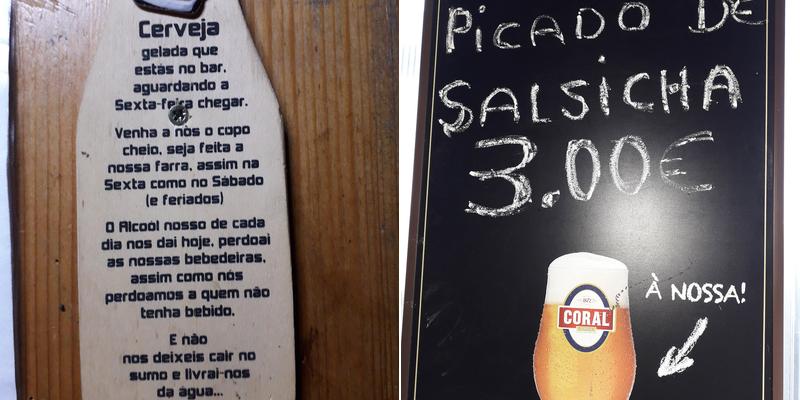 Cerveja
gelada que
estás no bar,
aguardando a
Sexta-feira chegar.
Venha a nós o copo
cheio, seja feita a
nossa farra, assim na
Sexta como no Sábado
(e feriados)
O Alcoól nosso de cada
dia nos dai hoje, perdoai
as nossas bebedeiras,
assim como nós
perdoamos a quem não
tenha bebido.
E não
nos deixeis cair no
sumo e livrai-nos
da água...
PiCADO DE
SALSiCHA
3.00€
À NOSSA!
CORAL